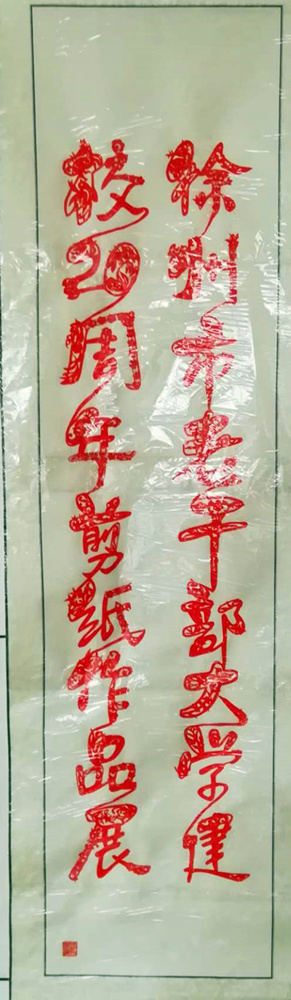 徐州市老干部大学建
校20周年剪纸作品展